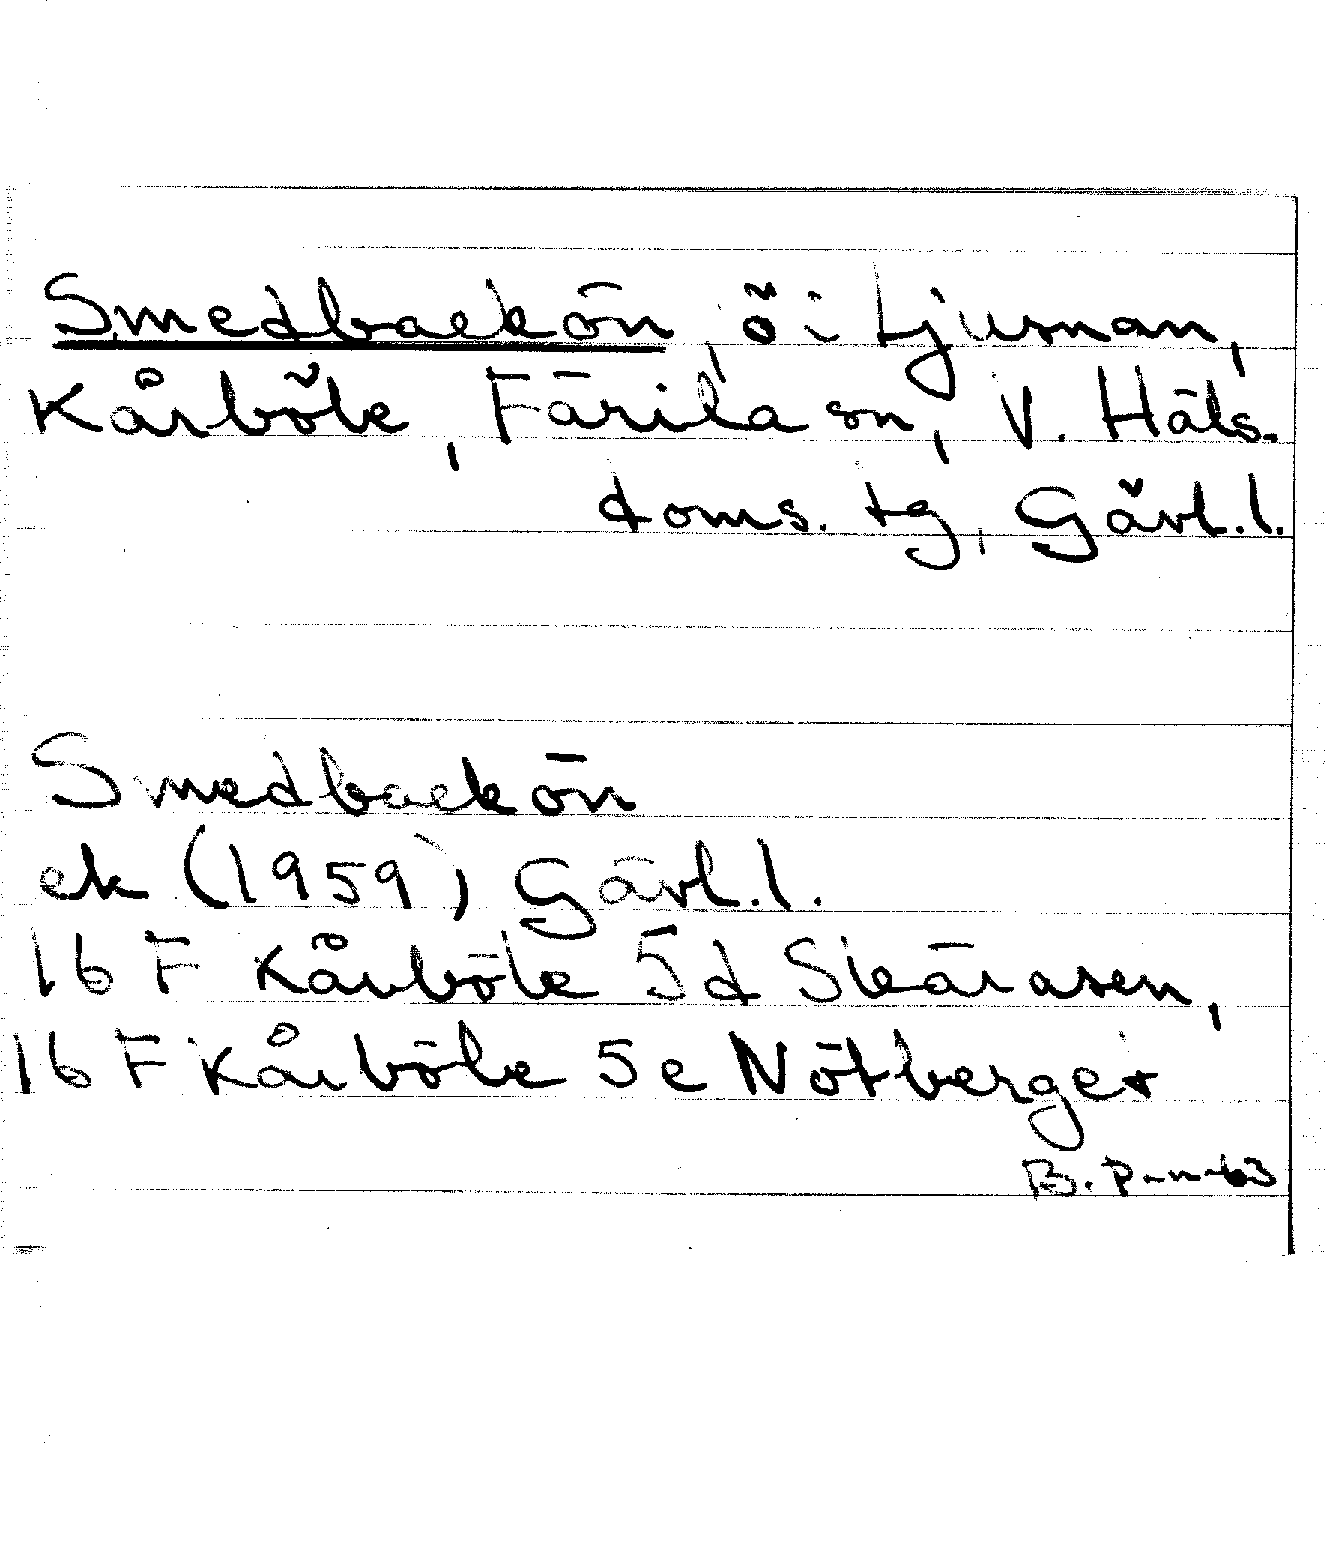 Smedbackön, ö i Ljusnan,
Kårböle, Färila sn, V. Häls.
doms. tg, Gävl. l.
Smedbackön
ek (1959), Gävl. l.
16 F Kårböle 5d Skäråsen,
16 F Kårböle 5e Nötberget
B. P-n -63